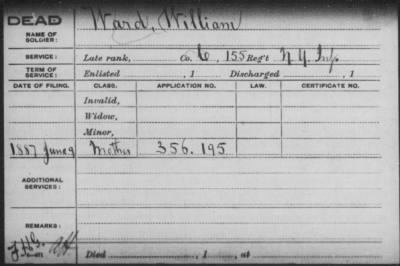 DEAD Ward, William
NAME OF SOLDIER:
SERVICE: Late rank, Co. 155 Reg't N.Y. Inf.
TERM OF SERVICE: Enlisted , 1 Discharged , 1
DATE OF FILING. CLASS. APPLICATION NO. LAW. CERTIFICATE NO.
Invalid,
Widow,
Minor,
1887 June 9 Mother 356.195
ADDITIONAL SERVICES:
REMARKS:
Died , 1 , at